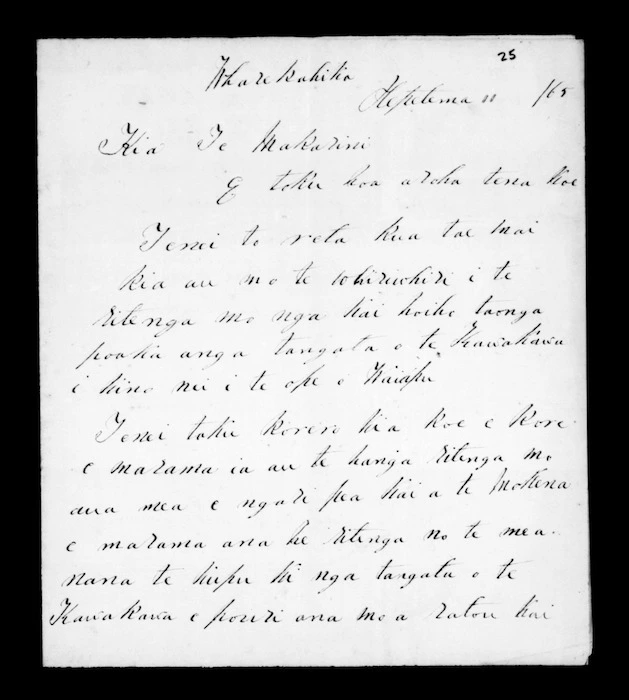 25
Wharekahika
Hepetema 11 /65
Kia Te Makarini
E toku hoa aroha tena koe
Tenei to reta kua tae mai
kia au mo te whiriwhiri i te
ritenga mo nga kai hoiho taonga
poaka anga tangata o te Kawakawa
i kino nei i te ope o Waiapu
Tenei taku korero kia koe e kore
e marama ia au te hanga ritenga mo
aua mea e ngari pea kei a te Mokena
e marama ana he ritenga no te mea
nana te kupu ki nga tangata o te
Kawakawa e pouri ana mo a ratou kai